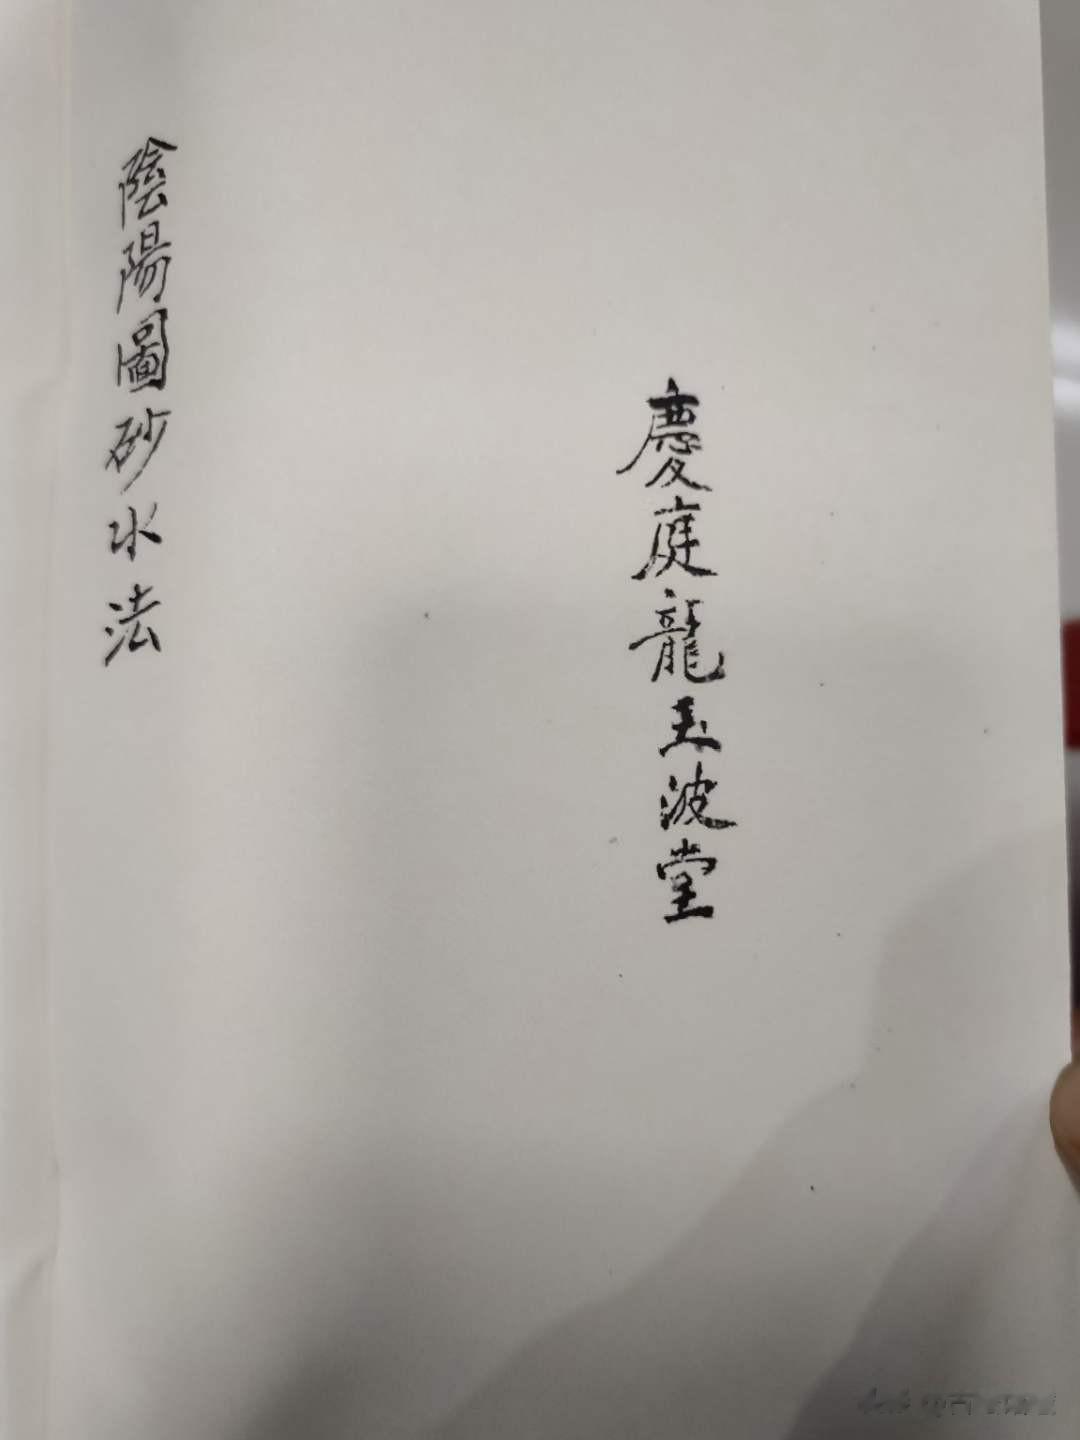 慶庭龍玉波堂
陰陽圖砂水法